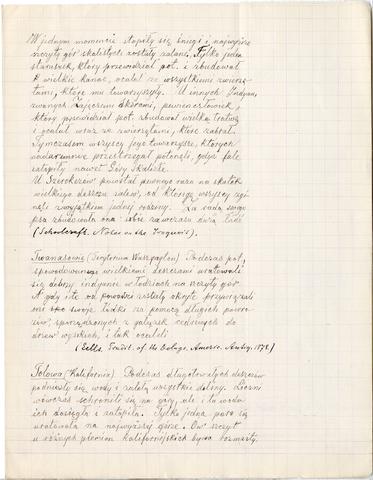 W jednym momencie stopiły się śniegi i najwyższe
szczyty gór skalistych zostały zalane. Tylko jeden
staruszek, który przewidział pot. i zbudował
wielkie kanoe, ocalał ze wszystkiemi zwierzę-
tami, które mu towarzyszyły. U innych Indyan,
zwanych Zajęczemi skórami, pewien człowiek,
który przewidział pot. zbudował wielką tratwę
i ocalał wraz ze zwierzętami, które zabrał.
Tymczasem wszyscy jego towarzysze, których
nadaremnie przestrzegał potonęli, gdyż fale
zatopiły nawet Góry Skaliste.
U Irokezów powstał pewnego razu na skutek
wielkiego deszczu zalew, od którego wszyscy zgi-
nęli z wyjątkiem jednej rodziny. Za radą swego
psa zbudowała ona sobie zawczasu dużą łódź
(Schoolcraft. Notes on the Iroquois).
Twanasowie (Terytorium Waszyngton) Podczas pot.,
spowodowanej wielkiemi deszczami uratowali
się dobrzy indyanie w łodziach na szczyty gór.
A gdy i te od powodzi zostały okryte przywiązali
oni swoje łódki za pomocą długich powro-
zów, sporządzonych z gałązek cedrowych do
drzew wysokich, i tak ocaleli
(Eells. Tradit. of the Deluge. Americ. Antiq. 1878.)
Tolowa (Kalifornia). Podczas długotrwałych deszczów
podniosły się wody i zalały wszystkie doliny. Liczni
wówczas schronili się na góry, ale i tu woda
ich dosięgła i zatopiła. Tylko jedna para się
uratowała na najwyższej górze. Ów szczyt
u różnych plemion kalifornijskich bywa rozmaity.